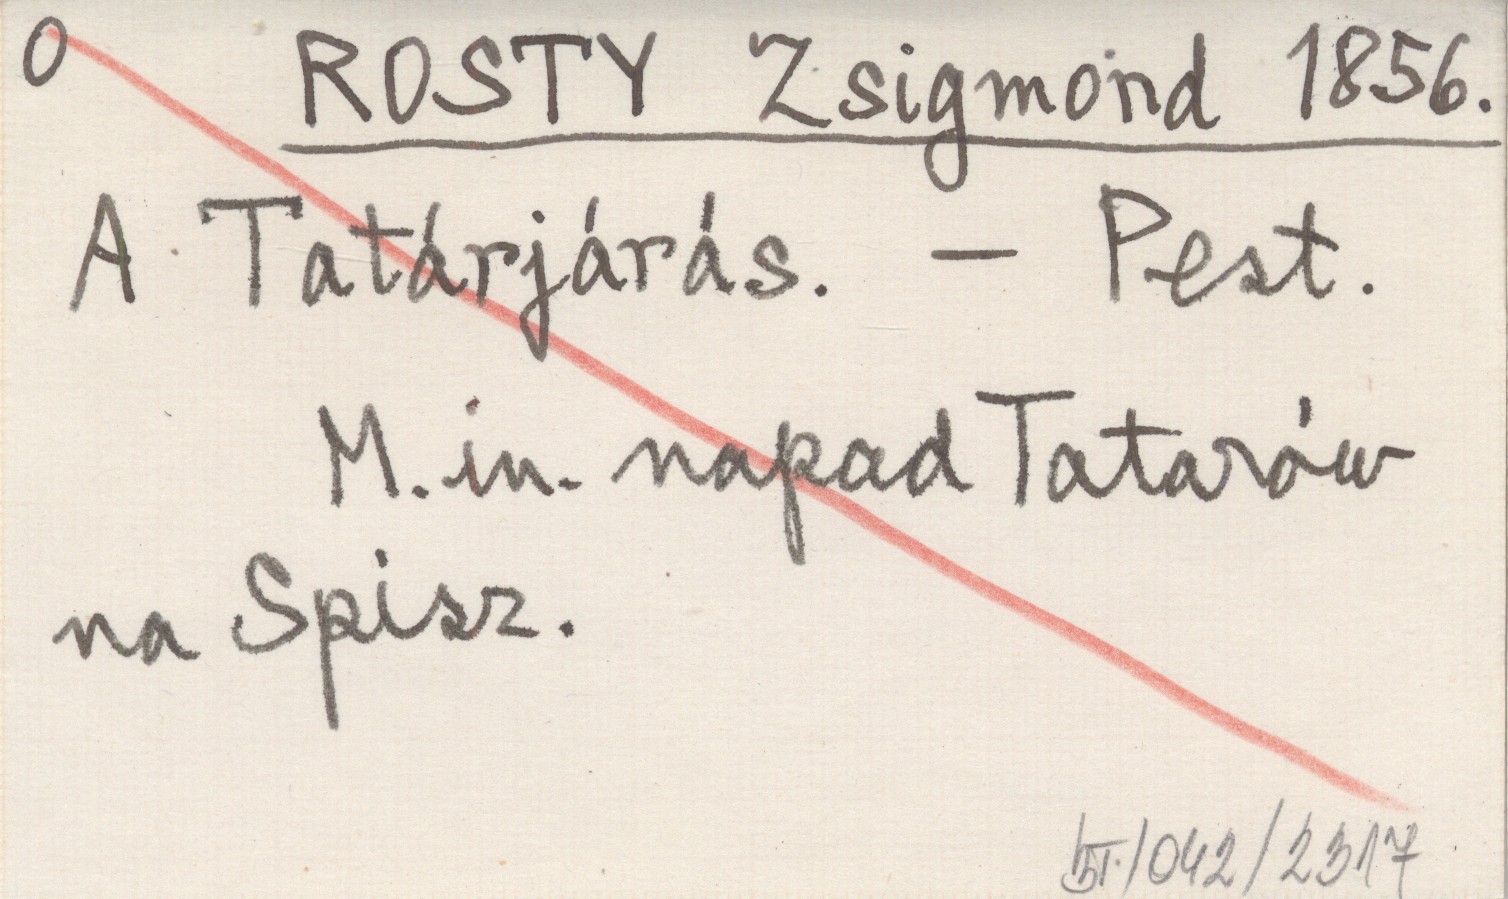 O ROSTY Zsigmond 1856.
A Tatárjárás. – Pest.
M.in. napad Tatarów
na Spisz.
/042/2317